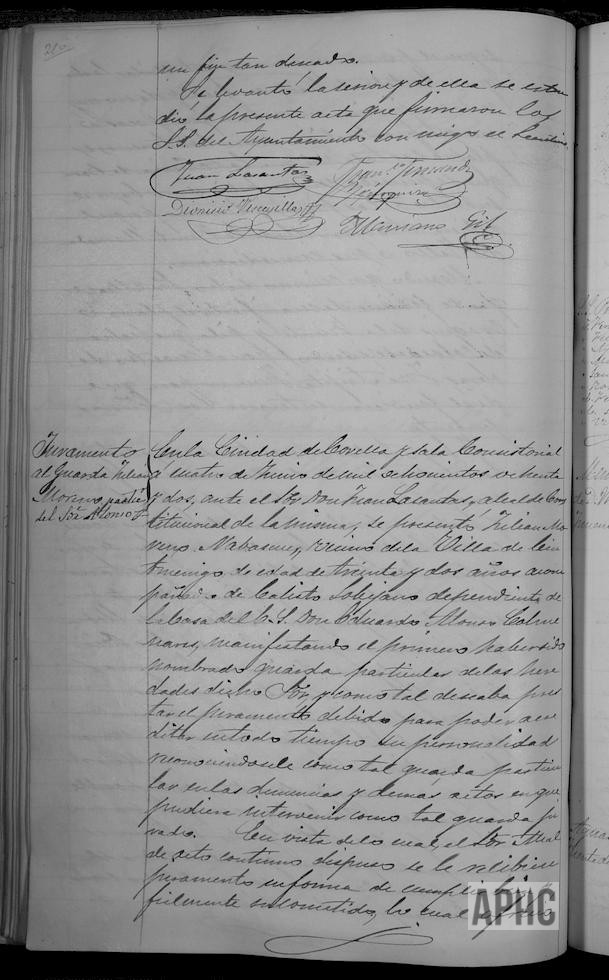 210
un fin tan deseado.
Se levantó la sesion y de ella se esten
dió la presente acta que firmaron los
S.S. del Ayuntamiento con migo el Secretario
Juan Lacantas
Dionisio
Mariano Gil
Juramento
al Guarda Julian
Moreno, partic.r
del Sor. Alonso
En la Ciudad de Corella y sala Consistorial
á cuatro de Junio de mil ochocientos ochenta
y dos, ante el Sor. Don Juan Lacantas, alcalde Cons
titucional de la misma, se presentó Julian Mo
reno Nabascues, vecino de la Villa de Cin
truenigo de edad de treinta y dos años acom
pañado de Calisto dependiente de
la Casa del E. S. Don Eduardo Alonso Colme
nares, manifestando el primero haber sido
nombrado guarda particular de las here
dades dicho Sor. y como tal deseaba pres
tar el juramento debido para poder acre
ditar en todo tiempo su personalidad
reconociendosele como tal guarda particu
lar en las denuncias y demas actos en que
pudiera intervenir como tal guarda ju
rado. En vista de lo cual, el Sor. Alcal
de acto continuo dispuso se le recibiera
juramento en forma de cumplir bien y
fielmente su cometido, lo cual
APHC